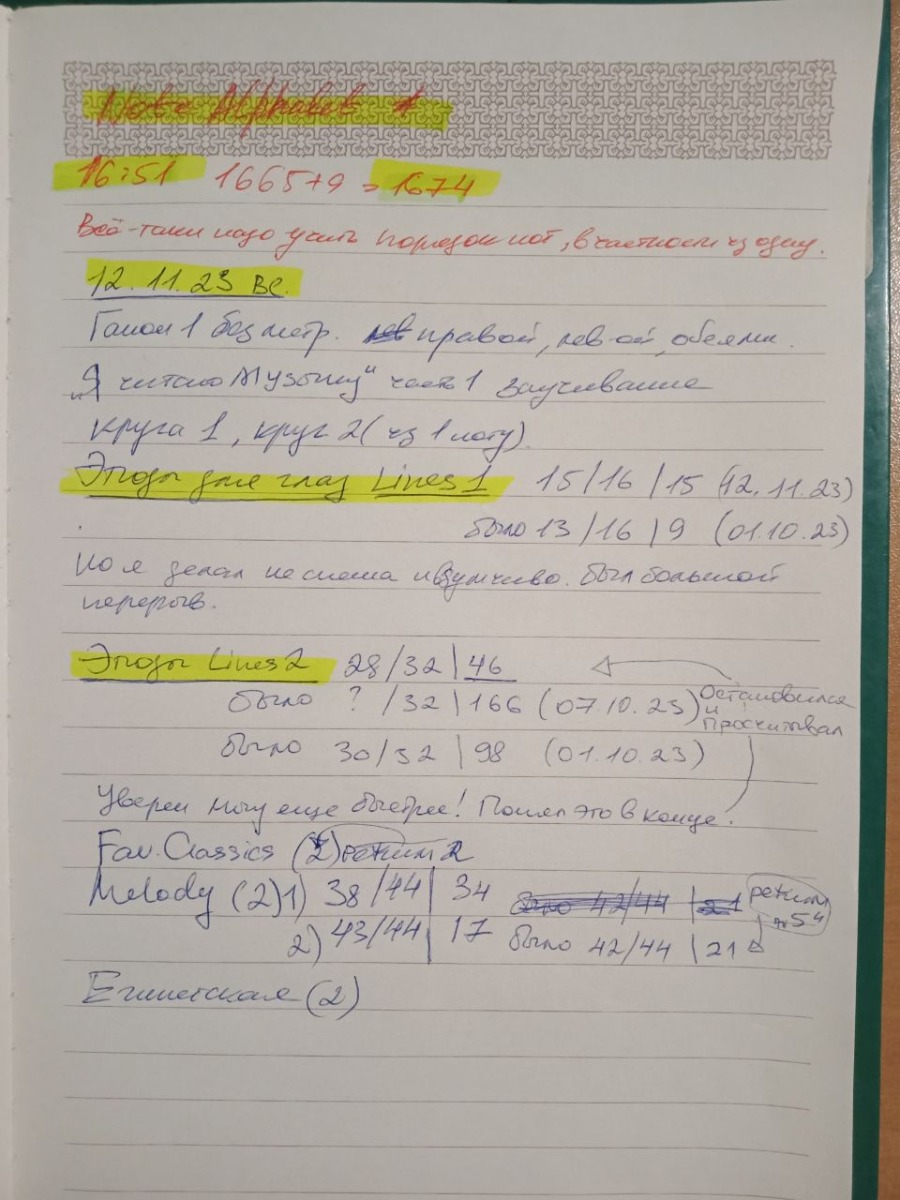 Note Alphabet
16:51 1665+9 = 1674
Всё-таки надо учить порядок нот, в частности чз одну.
12.11.23 вс.
Ганон 1 без метр. правой, лев-ой, обеими.
„Я читаю Музыку" часть 1 заучивание
круга 1, круг 2 (чз 1 ноту).
Этюды для глаз Lines 1 15/16 | 15 (12.11.23)
было 13/16 | 9 (01.10.23)
Но я делал не спеша и вдумчиво. Был большой
перерыв.
Этюды Lines 2 28/32 | 46
было ? /32 | 166 (07.10.23) Остановился
и
просчитывал
было 30/32 | 98 (01.10.23)
Уверен могу еще быстрее! Понял это в конце.
Fav. Classics (2) режим 2
Melody (2) 1) 38/44 | 34 было 42/44 | 21 режим
54
2) 43/44 | 17 было 42/44 | 21
Египетская (2)